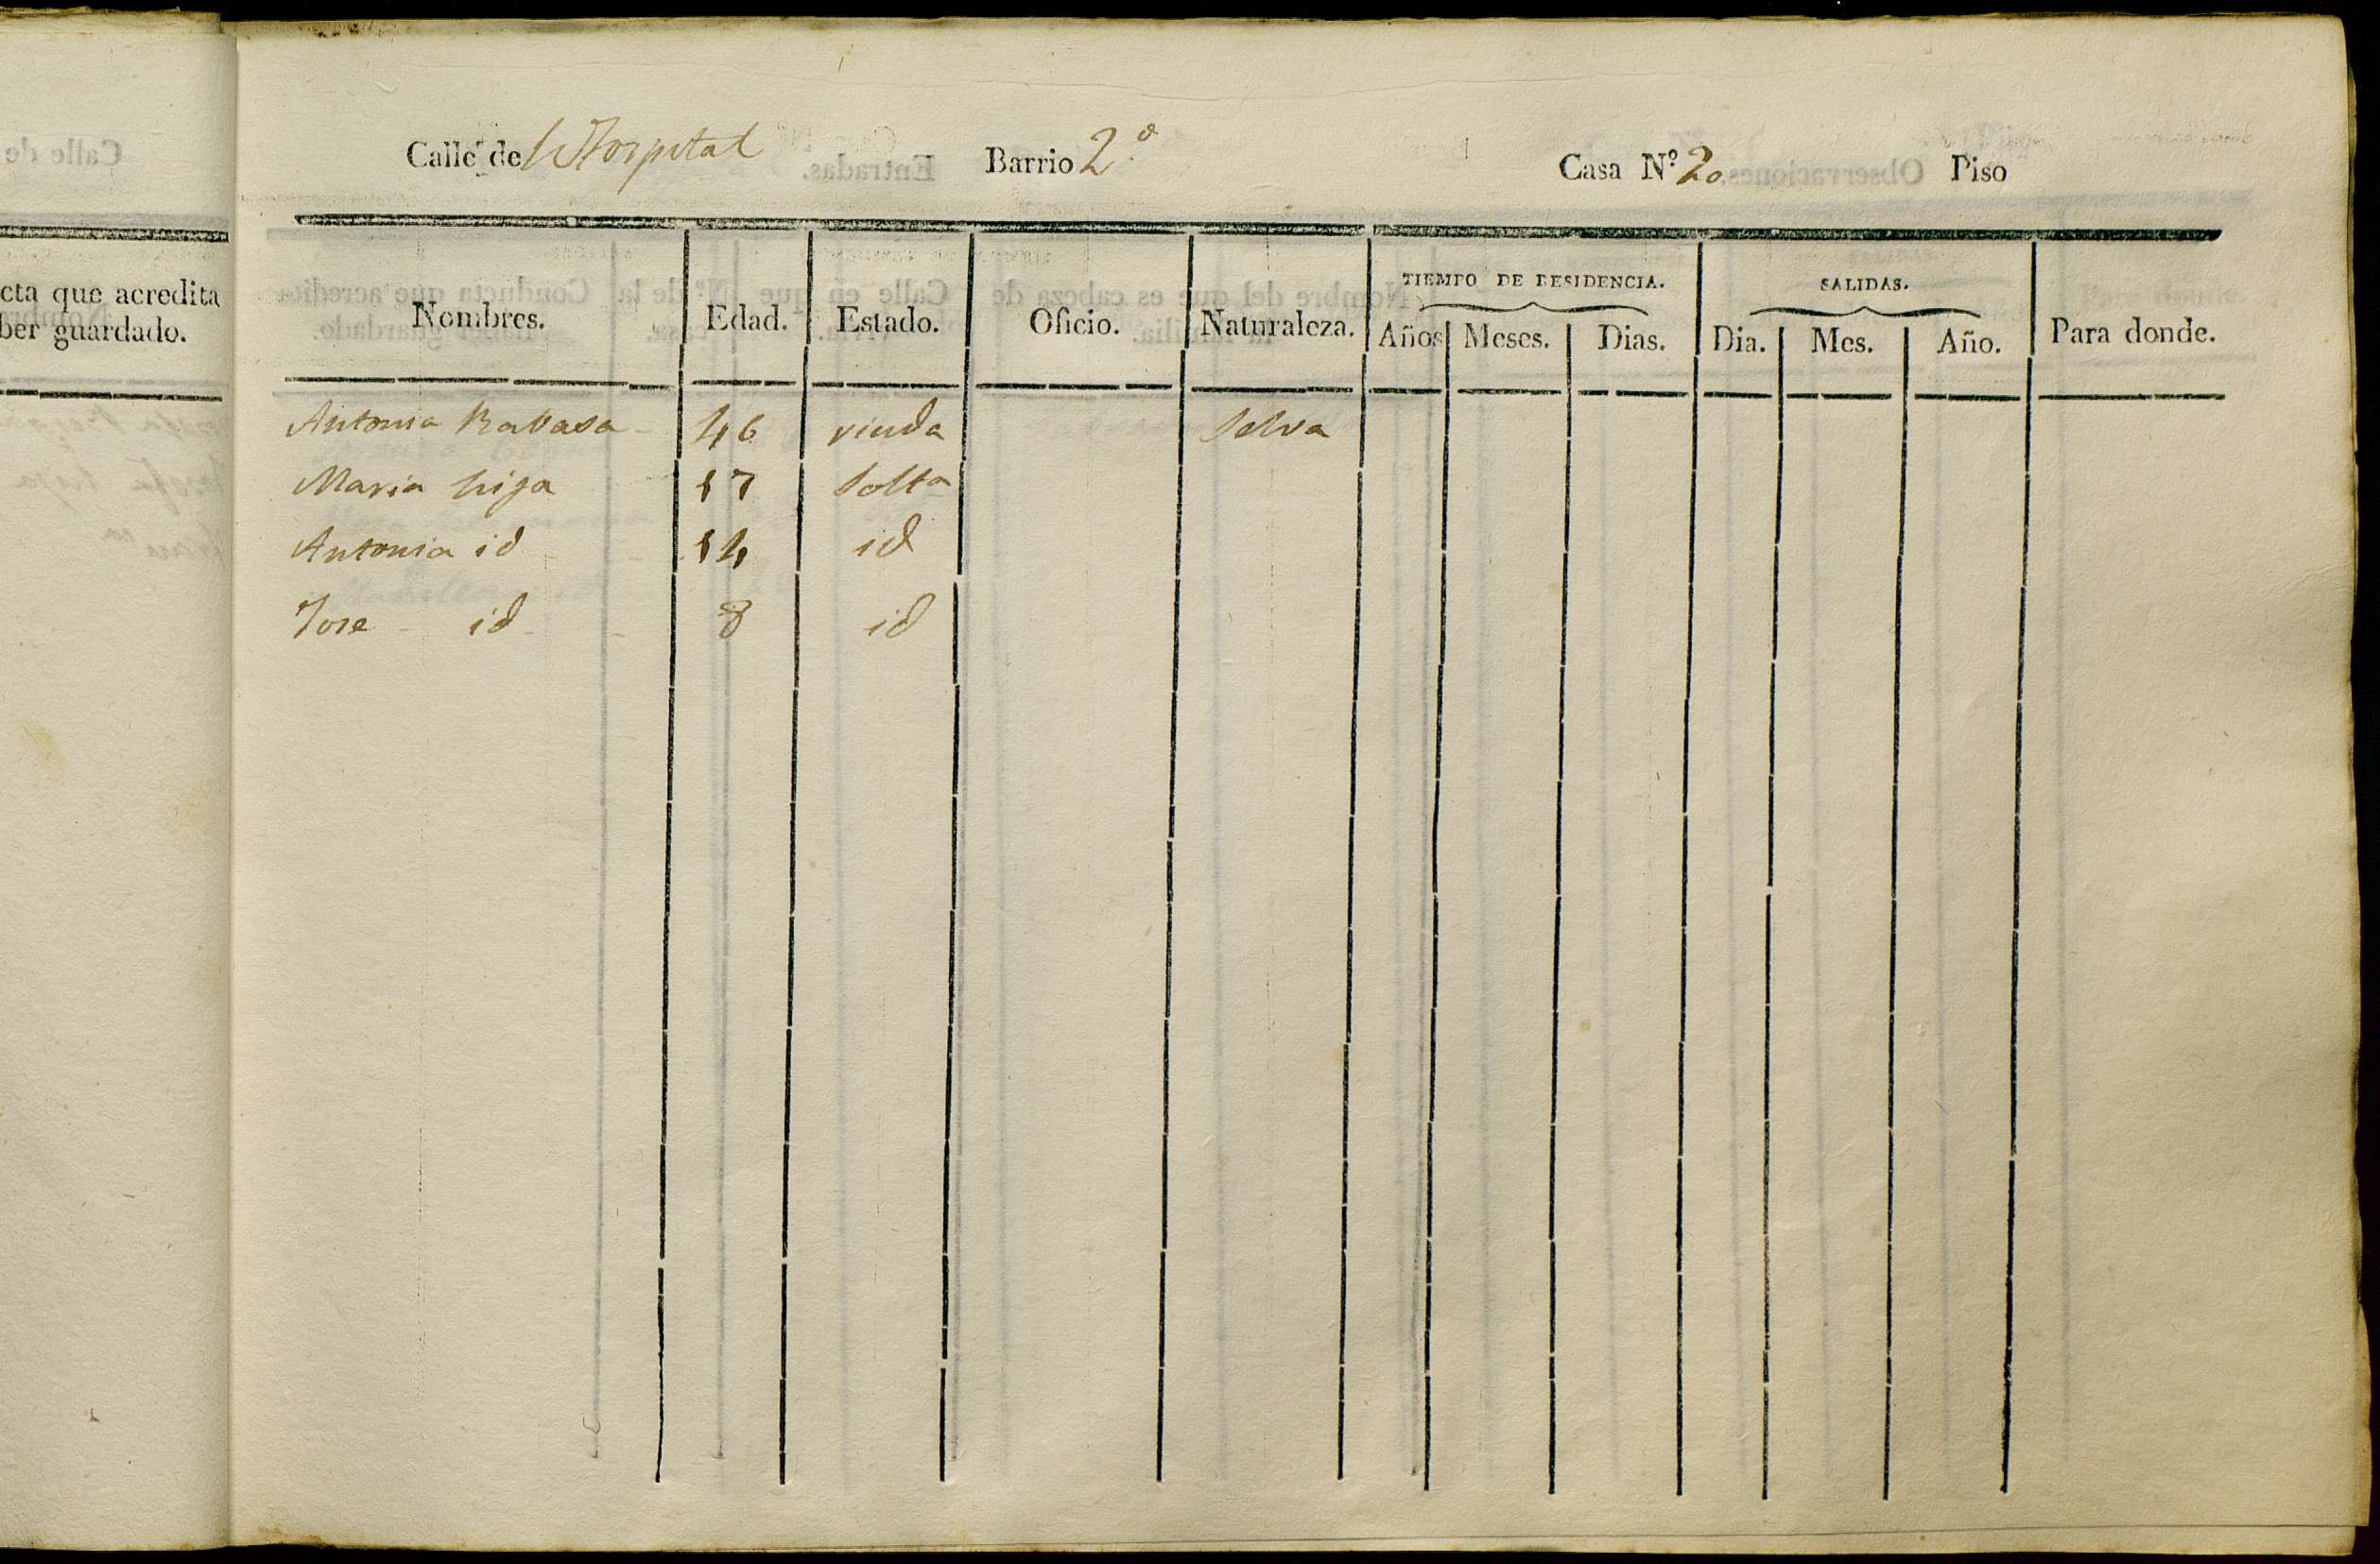 Calle de l Hospital Barrio 2º Casa Nº 20 Piso
cta que acredita
ber guardado.
Nombres. Edad. Estado. Oficio. Naturaleza. TIEMPO DE RESIDENCIA. SALIDAS. Para donde.
Años Meses. Dias. Dia. Mes. Año.
Antonia Rabasa 46 viuda Selva
Maria hija 17 Solta
Antonia id 14 id
Jose id 8 id